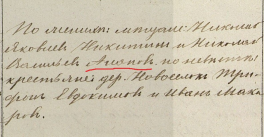 По метрике: мещане Николай
Яковлев Никитин и Николай
Васильев Агапов, по невѣсте
крестьяне дер. Новоселок Три-
фон Евдокимов и Иван Мака-
ров.